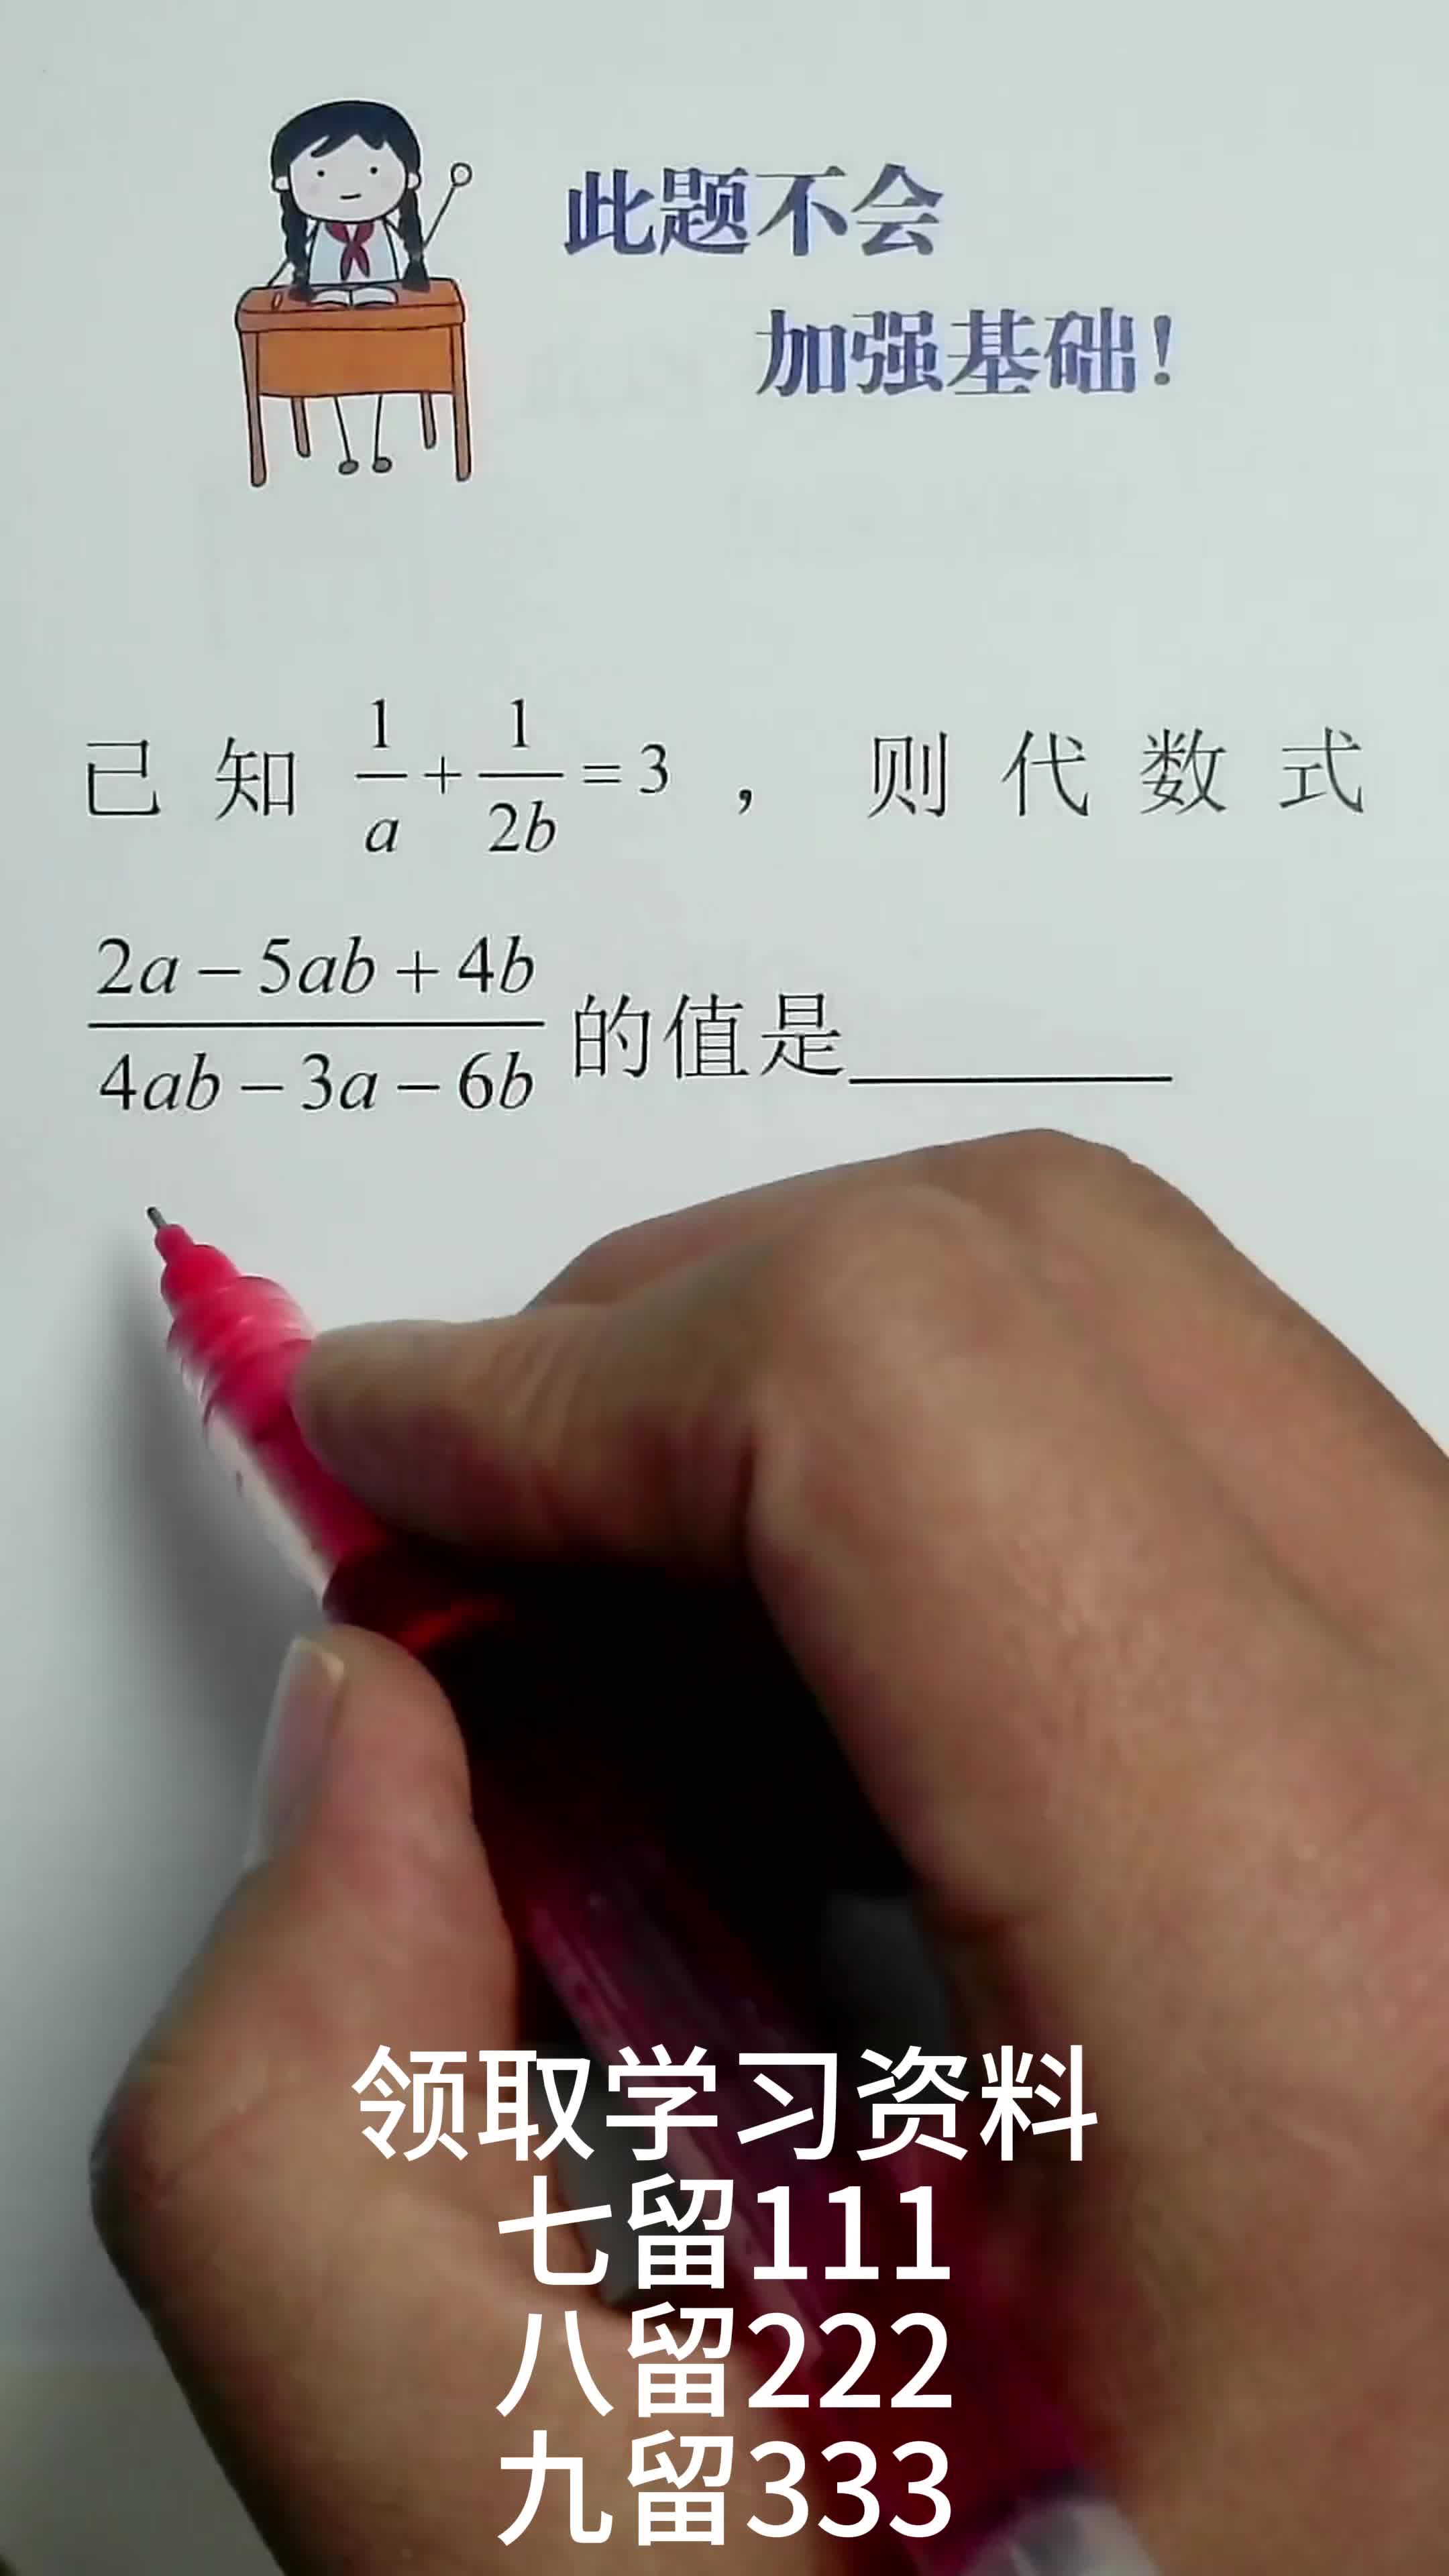 此题不会
加强基础!
已知 1/a + 1/2b = 3 ，则代数式
2a - 5ab + 4b / 4ab - 3a - 6b 的值是______
领取学习资料
七留111
八留222
九留333